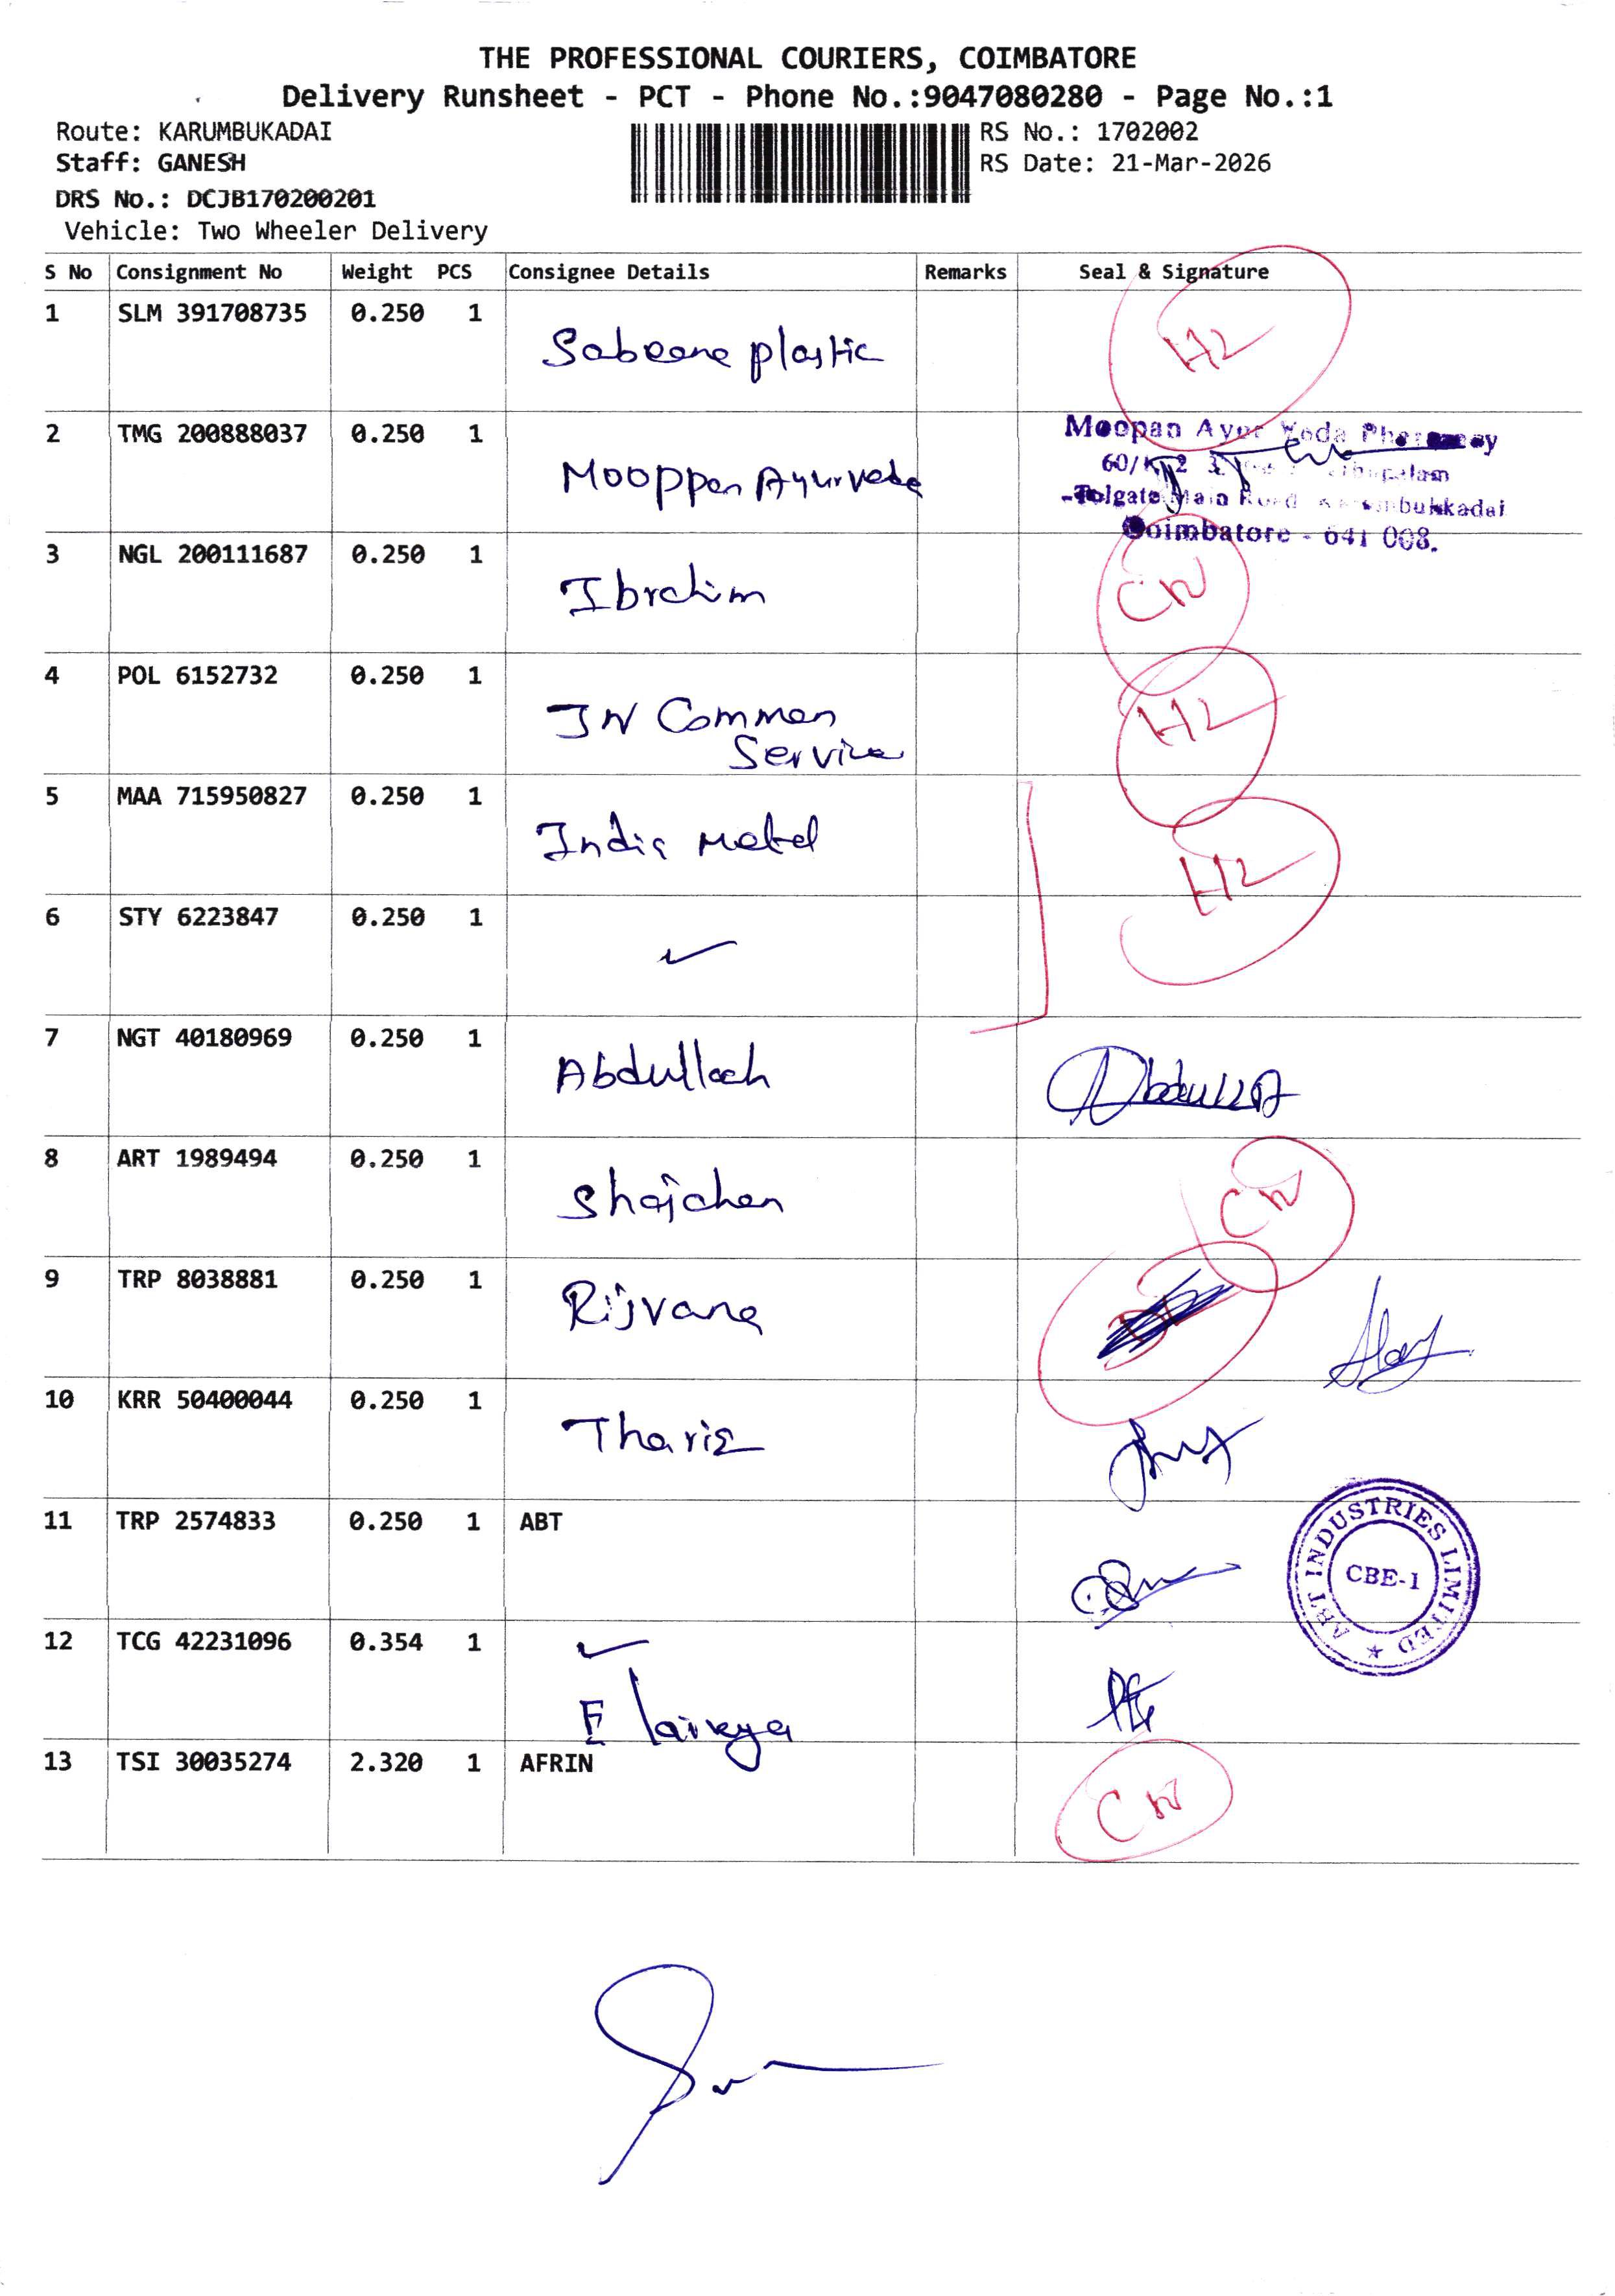 THE PROFESSIONAL COURIERS, COIMBATORE
Delivery Runsheet - PCT - Phone No.:9047080280 - Page No.:1
Route: KARUMBUKADAI
RS No.: 1702002
Staff: GANESH
RS Date: 21-Mar-2026
DRS No.: DCJB170200201
Vehicle: Two Wheeler Delivery
S No Consignment No Weight PCS Consignee Details Remarks Seal & Signature
1 SLM 391708735 0.250 1 plastic H2
2 TMG 200888037 0.250 1 Mooppan Ayurveda
Moopan Ayur Veda
60/
Tolgate Main Road
Coimbatore - 641 008.
3 NGL 200111687 0.250 1 Ibrahim CN
4 POL 6152732 0.250 1 JN Common
Service H2
5 MAA 715950827 0.250 1 India Metal H2
6 STY 6223847 0.250 1
7 NGT 40180969 0.250 1 Abdullah
8 ART 1989494 0.250 1 Shajahan CN
9 TRP 8038881 0.250 1 Rijvana
10 KRR 50400044 0.250 1
11 TRP 2574833 0.250 1 ABT
ABT INDUSTRIES LIMITED
CBE-1
12 TCG 42231096 0.354 1
13 TSI 30035274 2.320 1 AFRIN CN